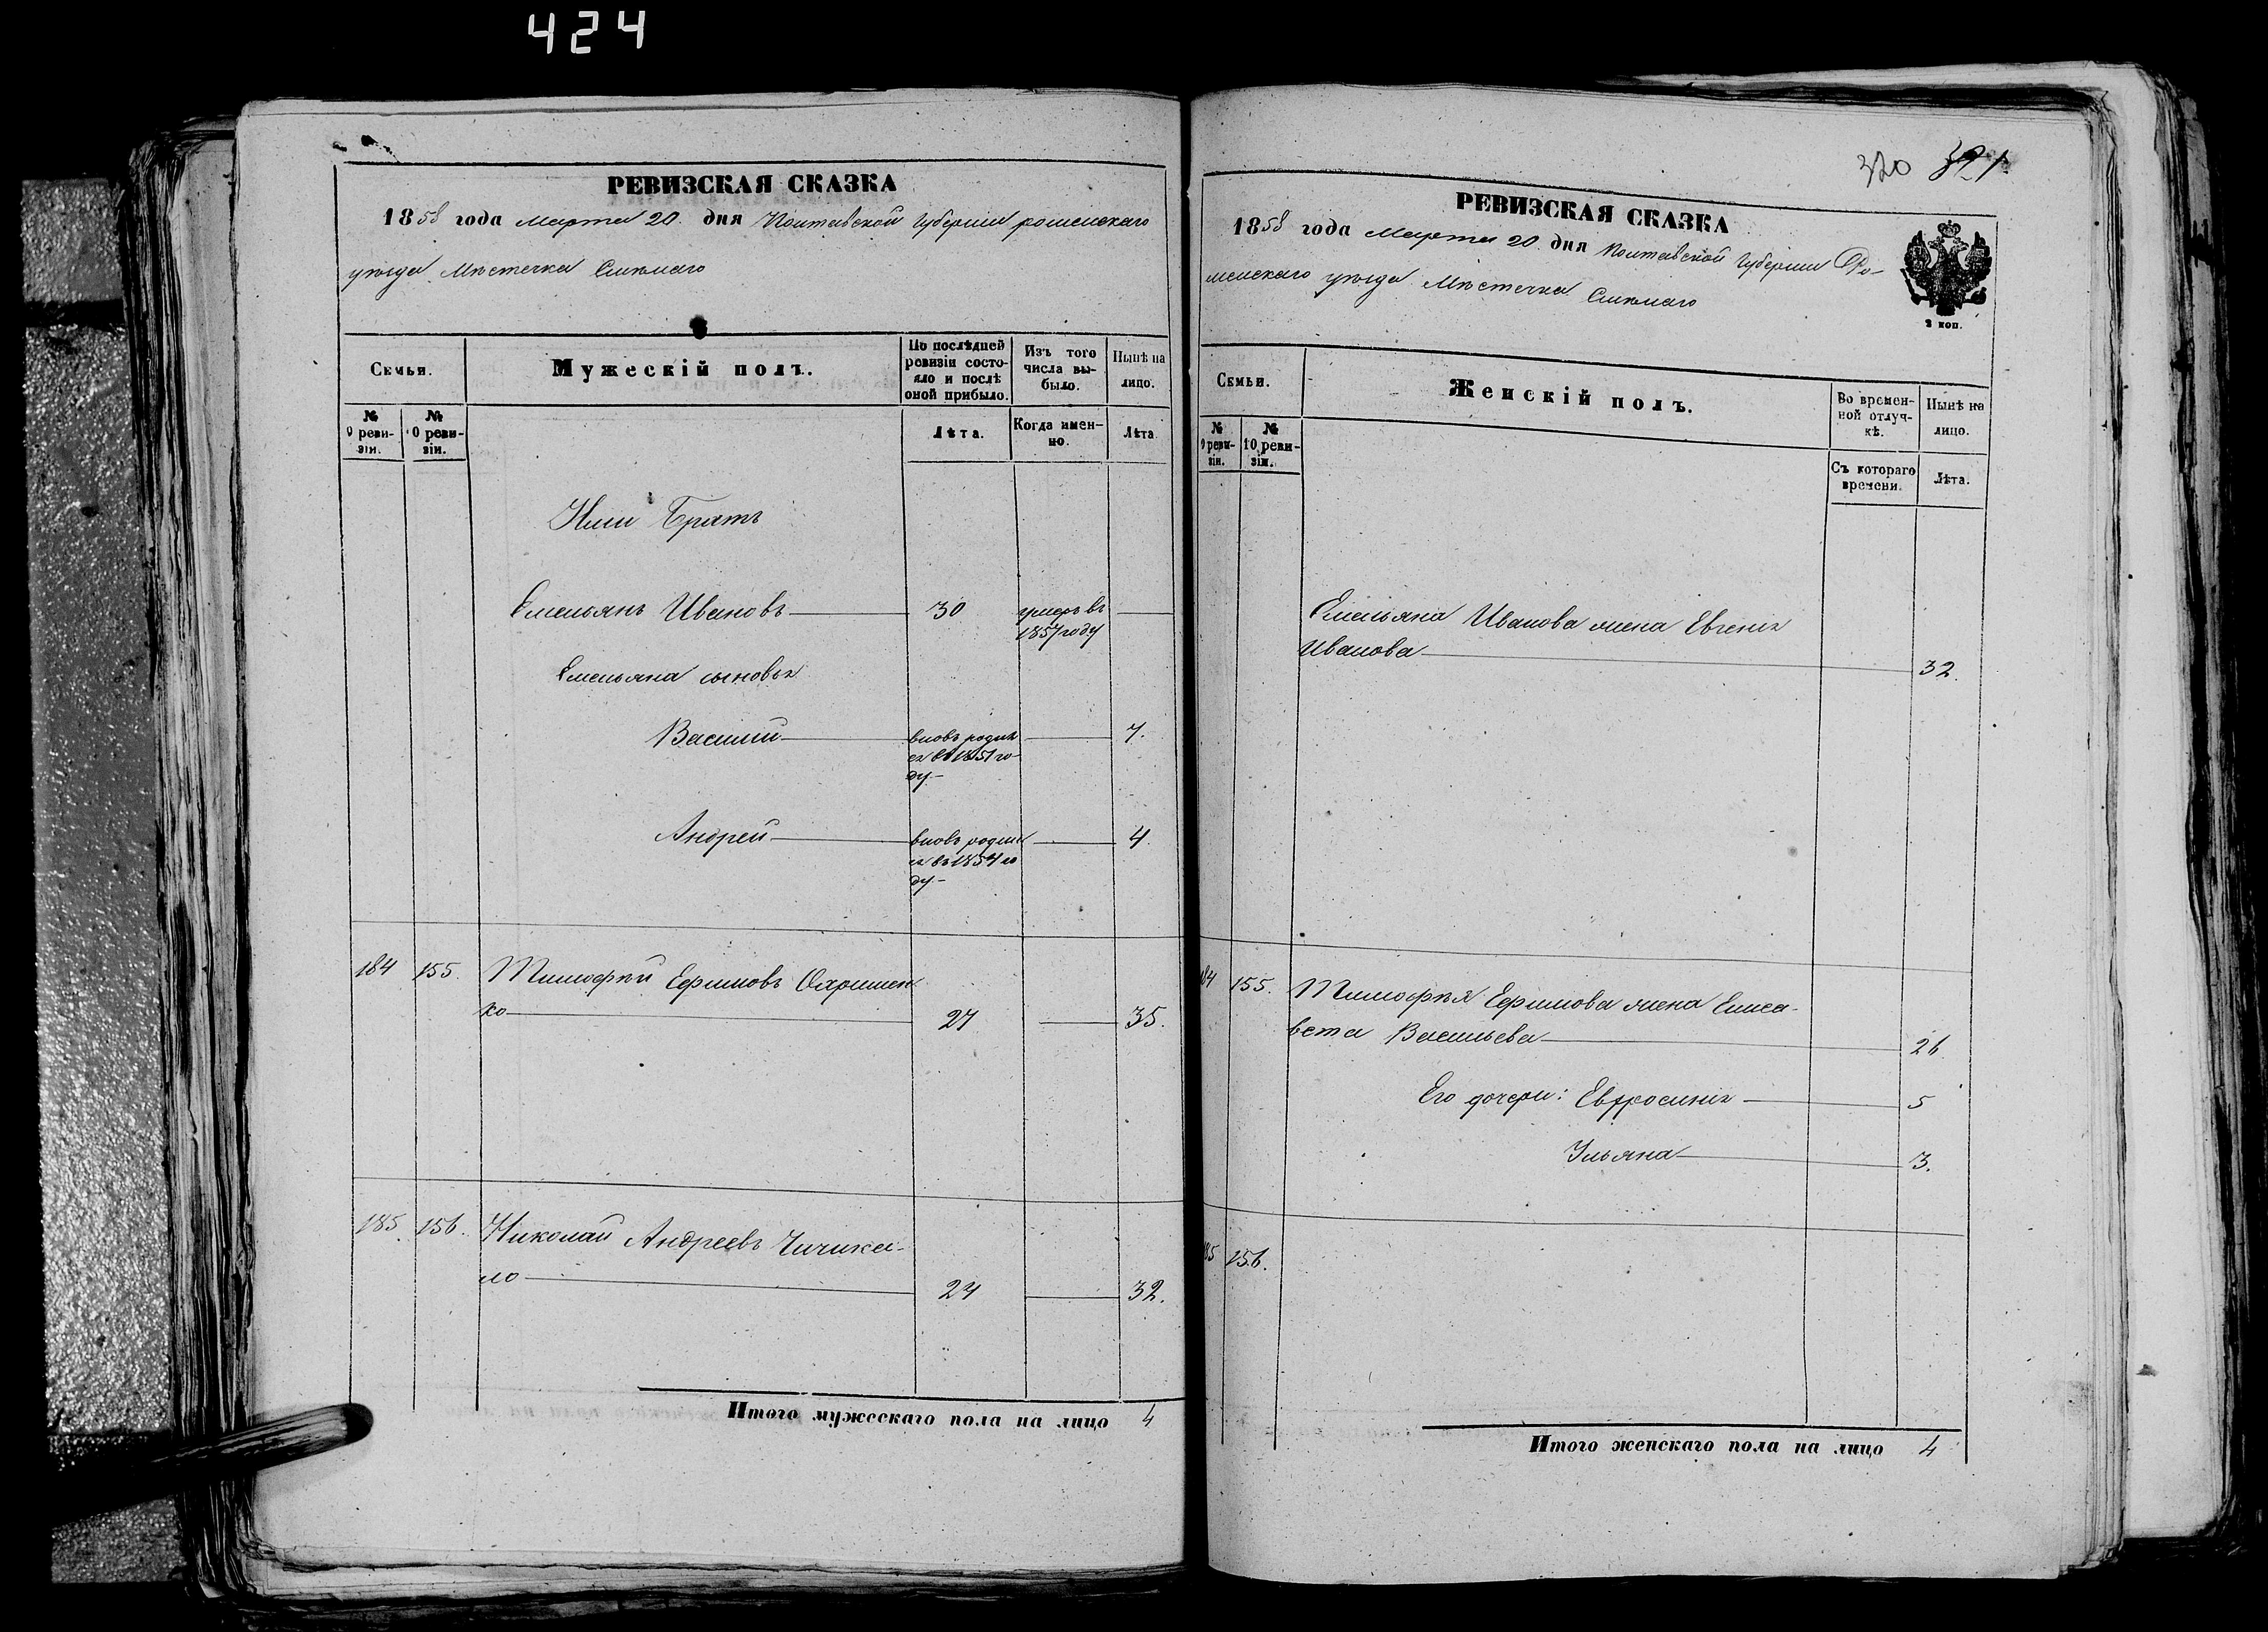 424
РЕВИЗСКАЯ СКАЗКА
1858 года Марта 20 дня Полтавской Губернии роменскаго
уѣзда Мѣстечка Смѣлаго
Семьи.
Мужескій полъ.
По послѣдней
ревизіи состо-
яло и послѣ
оной прибыло.
Изъ того
числа вы-
было.
Нынѣ на
лицо.
№
9 реви-
зіи.
№
10 реви-
зіи.
Лѣта.
Когда имен-
но.
Лѣта
Братъ
Емельянъ Ивановъ 30 умеръ въ
1857 году
Емельяна сыновья
Василий вновь родил
ся въ 1851 го-
ду 7.
Андрей вновь родил
ся въ 1854 го
ду 4.
184 155. Тимофѣй Ефимовъ Охримен
ко 27 35.
185. 156. Николай Андреевъ Чичика-
ло 24 32.
Итого мужескаго пола на лицо 4
320 321
РЕВИЗСКАЯ СКАЗКА
1858 года Марта 20 дня Полтавской Губернии Ро-
менскаго уѣзда Мѣстечка Смѣлаго
2 коп.
Семьи.
Женскій полъ.
Во времен-
ной отлуч-
кѣ.
Нынѣ на
лицо.
№
9 реви-
зіи.
№
10 реви-
зіи.
Съ котораго
времени.
Лѣта.
Емельяна Иванова жена Евгения
Иванова 32.
184 155. Тимофѣя Ефимова жена Елиса-
вета Васильева 26
Его дочери: Евфросиния 5
Ульяна 3.
185 156.
Итого женскаго пола на лицо 4